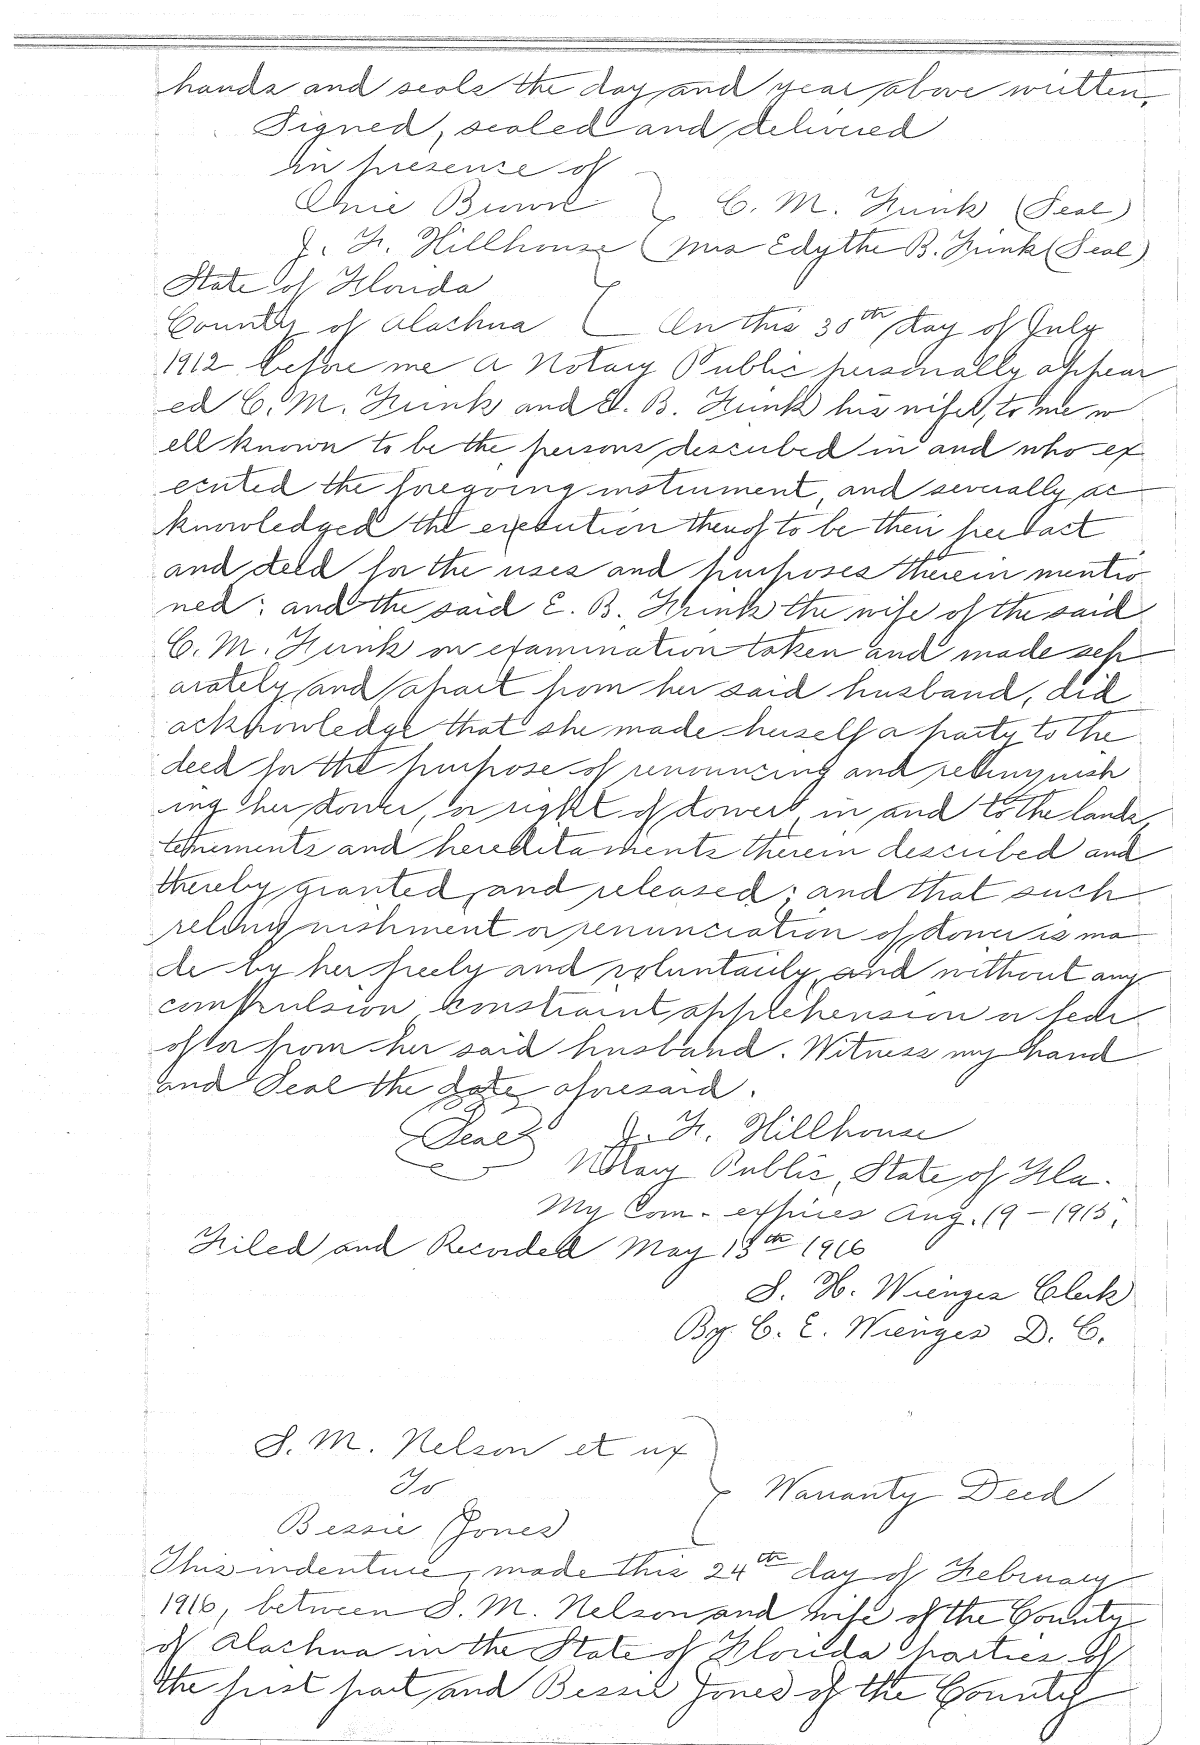 hands and seals the day and year above written.
Signed, sealed and delivered
in presence of
Onie Brown } C. M. Frink (Seal)
J. F. Hillhouse Mrs Edythe B. Frink (Seal)
State of Florida }
County of Alachua On this 30th day of July
1912 before me a Notary Public personally appear
ed C. M. Frink and E. B. Frink his wife, to me w
ell known to be the persons described in and who ex
ecuted the foregoing instrument, and severally ac
knowledged the execution thereof to be their free act
and deed for the uses and purposes therein mentio
ned; and the said E. B. Frink the wife of the said
C. M. Frink on examination taken and made sep
arately and apart from her said husband, did
acknowledge that she made herself a party to the
deed for the purpose of renouncing and relinquish
ing her dower, or right of dower, in and to the lands,
tenements and hereditaments therein described and
thereby granted, and released; and that such
relinquishment or renunciation of dower is ma
de by her freely and voluntarily, and without any
compulsion, constraint apprehension or fear
of or from her said husband. Witness my hand
and Seal the date aforesaid.
Seal J. F. Hillhouse
Notary Public, State of Fla.
My Com. expires Aug. 19 - 1915.
Filed and Recorded May 13th 1916
S. H. Wienges Clerk
By C. E. Wienges D. C.
S. M. Nelson et ux
To } Warranty Deed
Bessie Jones
This indenture, made this 24th day of February
1916, between S. M. Nelson and wife of the County
of Alachua in the State of Florida parties of
the first part, and Bessie Jones of the County